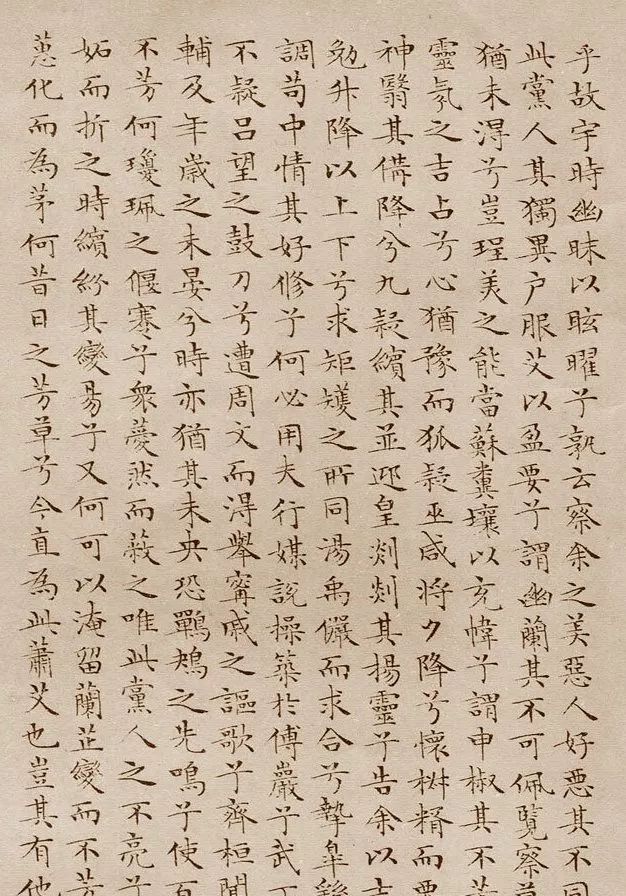 乎故宇時幽昧以眩曜兮孰云察余之美惡人好惡其不同
此黨人其獨異户服艾以盈要兮謂幽蘭其不可佩覽察草
猶未得兮豈珵美之能當蘇糞壤以充幃兮謂申椒其不芳
靈氛之吉占兮心猶豫而狐疑巫咸將夕降兮懷椒糈而要
神翳其備降兮九疑繽其並迎皇剡剡其揚靈兮告余以吉
勉升降以上下兮求矩矱之所同湯禹儼而求合兮摯皋繇
調苟中情其好修兮何必用夫行媒說操築於傅巖兮武丁
不疑呂望之鼓刀兮遭周文而得舉甯戚之謳歌兮齊桓聞
輔及年歲之未晏兮時亦猶其未央恐鶗鴂之先鳴兮使百
不芳何瓊珮之偃蹇兮衆薆然而蔽之唯此黨人之不亮兮
妬而折之時繽紛其變易兮又何可以淹留蘭芷變而不芳
蕙化而為茅何昔日之芳草兮今直為此蕭艾也豈其有他